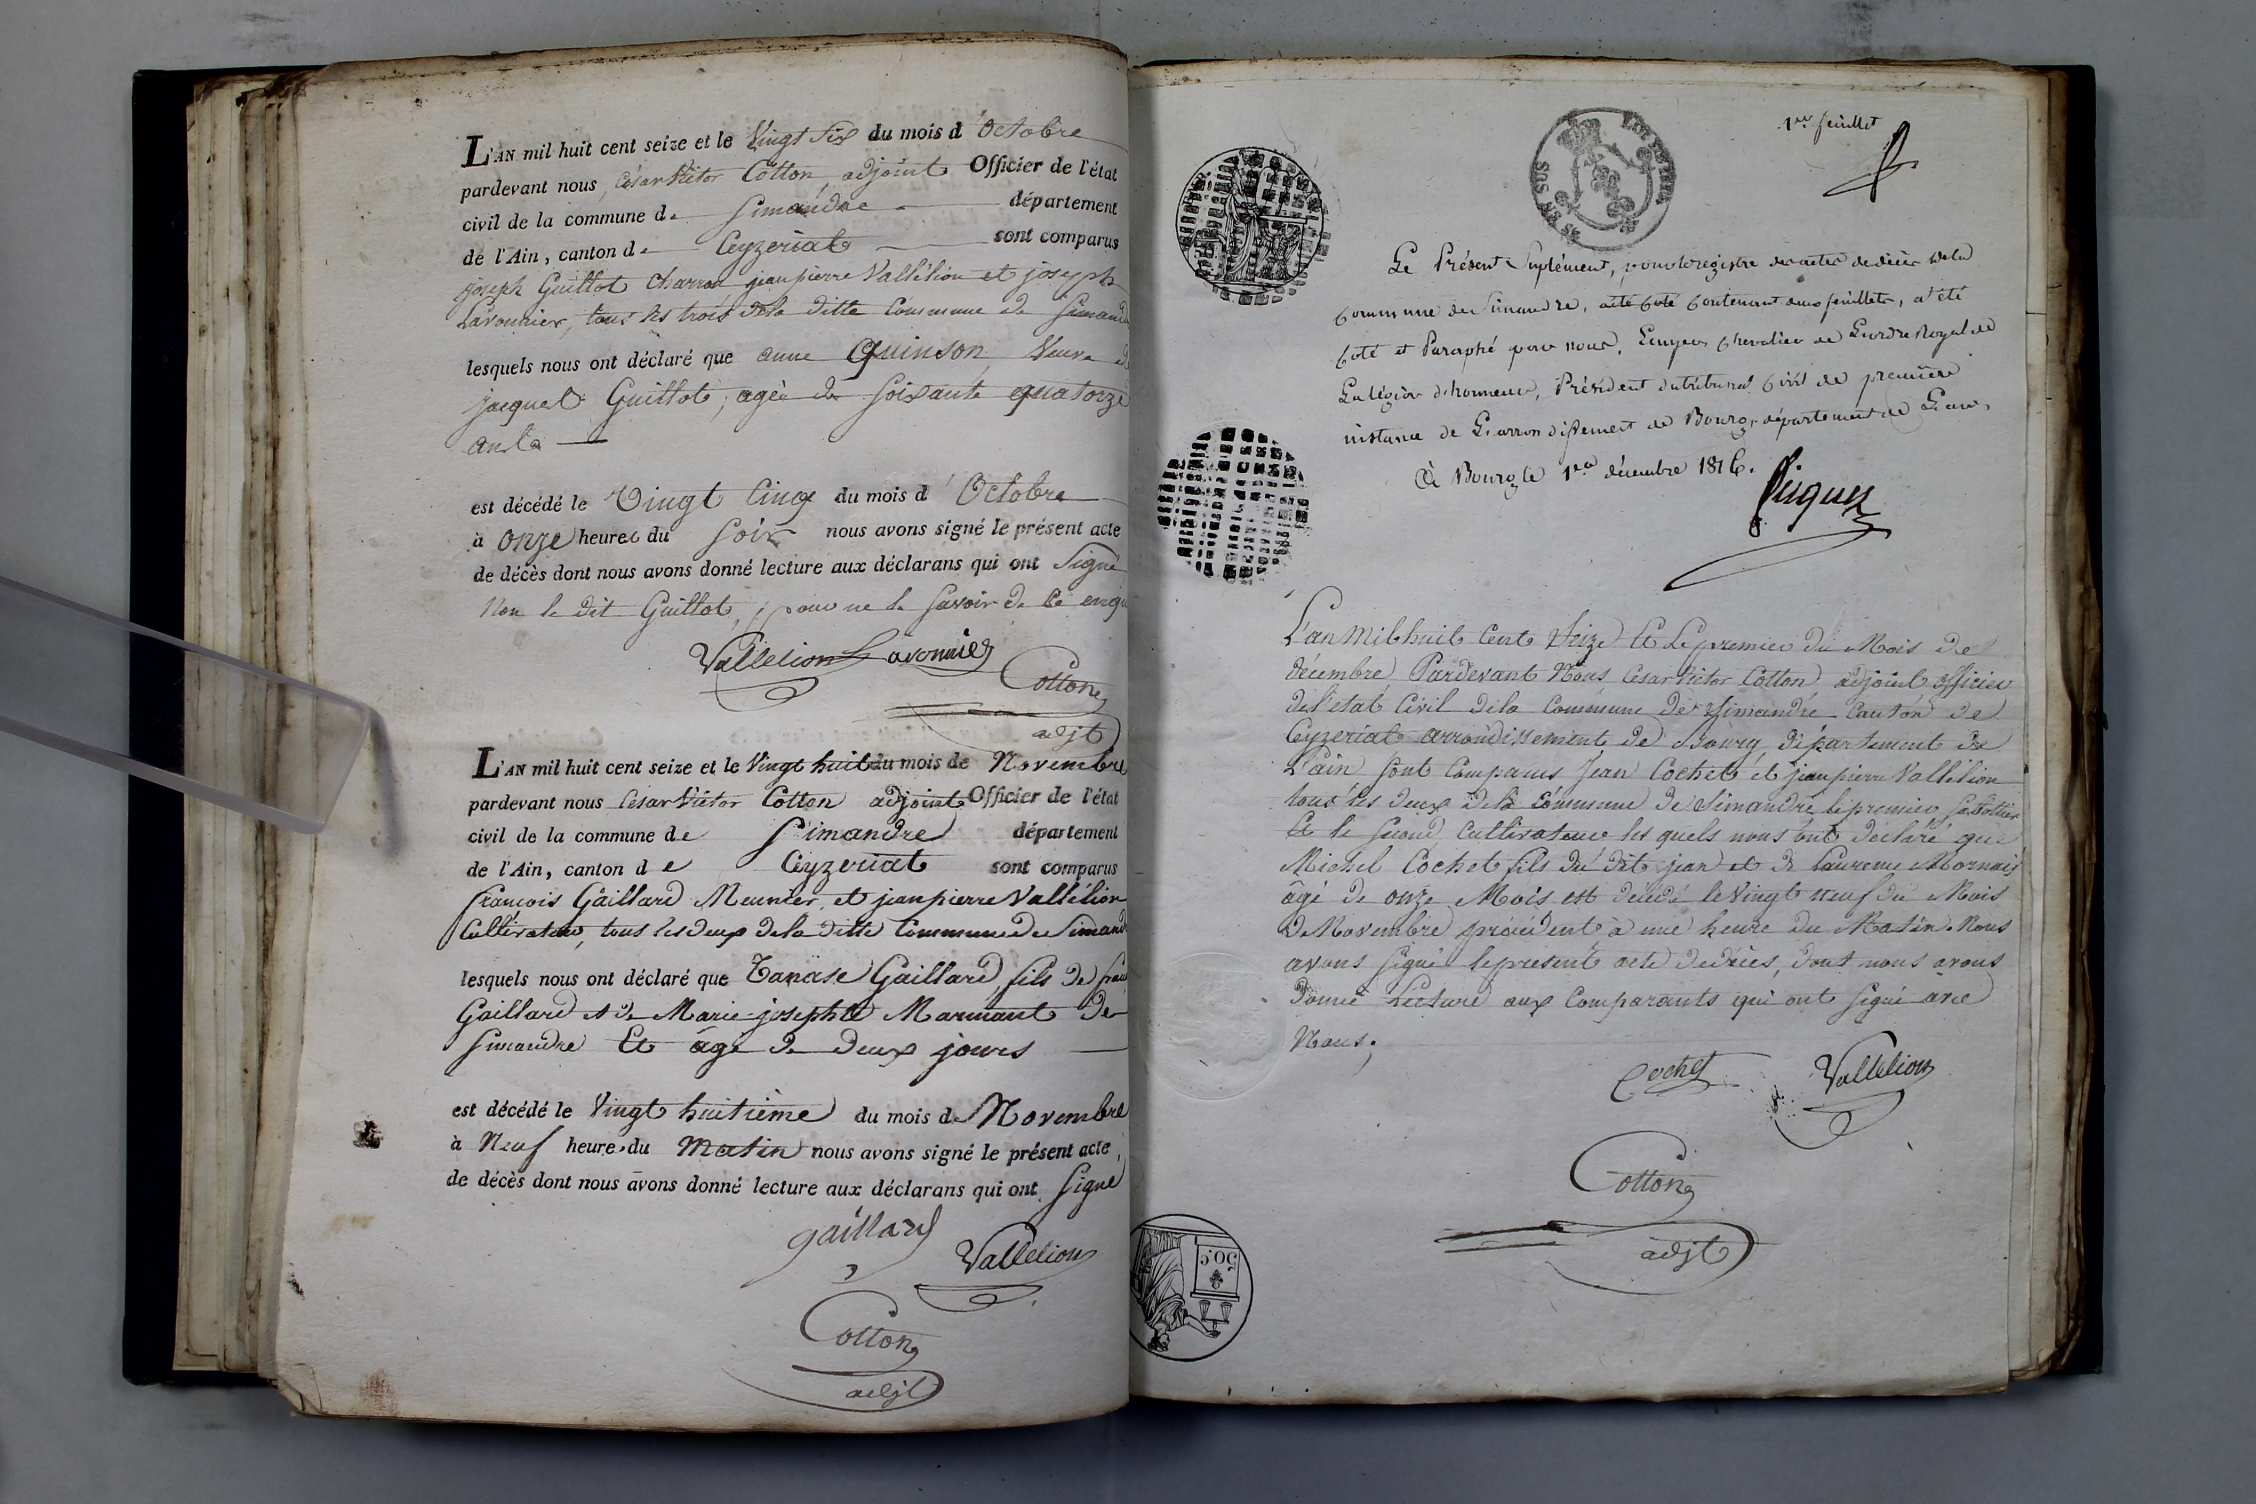 L'AN mil huit cent seize et le Vingt Six du mois d'Octobre
pardevant nous César Victor Cotton adjoint Officier de l'état
civil de la commune de Simandre département
de l'Ain, canton de Ceyzeriat sont comparus
joseph Guillot Charron jeanpierre Vallélion et joseph
Lavonnier, tous les trois de la ditte Commune de Simandre
lesquels nous ont déclaré que anne Quinson Veuve de
jacques Guillot, agée de soixante quatorze
ans
est décédé le Vingt Cinq du mois d'Octobre
à onze heures du Soir nous avons signé le présent acte
de décès dont nous avons donné lecture aux déclarans qui ont Signé
Non le dit Guillot, pour ne le savoir de ce enqu
Vallelion Lavonnier
Cotton
adjt
L'AN mil huit cent seize et le Vingt huit du mois de Novembre
pardevant nous César Victor Cotton adjoint Officier de l'état
civil de la commune de Simandre département
de l'Ain, canton de Ceyzeriat sont comparus
francois Gaillard Meunier, et jeanpierre Vallélion
Cultivateur, tous les deux de la ditte Commune de Simandre
lesquels nous ont déclaré que Tanase Gaillard, fils de
Gaillard et de Marie josephte Marmant de
Simandre Et agé de deux jours
est décédé le Vingt huitième du mois de Novembre
à Neuf heures du Matin nous avons signé le présent acte
de décès dont nous avons donné lecture aux déclarans qui ont Signé
gaillard
Vallelion
Cotton
adjt
1er feuillet
Le Présent Suplément, pour le registre des actes de décès de la
Commune de Simandre, contenant deux feuillets, a été
Coté et Paraphé par nous, Ecuyer Chevalier de L'ordre Royal de
La légion d'honneur, Président du tribunal Civil de première
instance de L'arrondissement de Bourg, département de L'ain,
à Bourg le 1er décembre 1816.
Picquet
L'an Mil huit Cent Seize Et Le premier du Mois de
décembre Pardevant Nous César Victor Cotton adjoint officier
de l'état Civil de la Commune de Simandre Canton de
Ceyzeriat arrondissement de Bourg département de
L'ain Sont Comparus Jean Cochet et jeanpierre Vallélion
tous les deux de la Commune de Simandre le premier
Et le second Cultivateur les quels nous ont déclaré que
Michel Cochet fils du dit jean et de Laurence Mornay
âgé de onze Mois est décédé le Vingt neuf du Mois
de Novembre précédent à une heure du Matin. Nous
avons signé le présent acte de décès, dont nous avons
donné Lecture aux Comparants qui ont signé avec
Nous.
Cochet Vallelion
Cotton
adjt
50.c